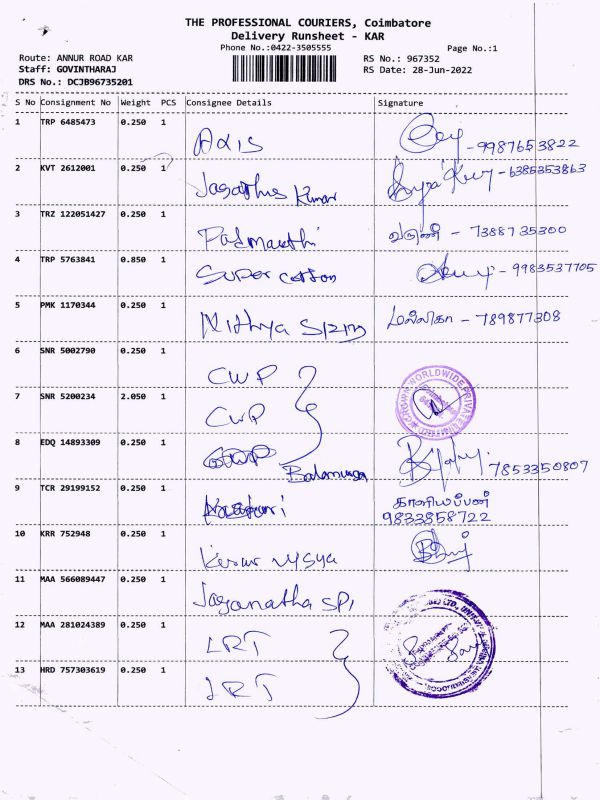 THE PROFESSIONAL COURIERS, Coimbatore
Delivery Runsheet - KAR
Phone No.:0422-3505555
Page No.:1
Route: ANNUR ROAD KAR
RS No.: 967352
Staff: GOVINTHARAJ
RS Date: 28-Jun-2022
DRS No.: DCJB96735201
S No Consignment No Weight PCS Consignee Details Signature
1 TRP 6485473 0.250 1 Axis -9987653822
2 KVT 2612001 0.250 1 Kumar -6385353863
3 TRZ 122051427 0.250 1 வருணி - 7388735300
4 TRP 5763841 0.850 1 Super cotton -9983537705
5 PMK 1170344 0.250 1 Nithya மல்லிகா - 789877308
6 SNR 5002790 0.250 1 CWP
7 SNR 5200234 2.050 1 CWP
8 EDQ 14893309 0.250 1 7853350807
9 TCR 29199152 0.250 1 காளியப்பன்
9833858722
10 KRR 752948 0.250 1
11 MAA 566089447 0.250 1
12 MAA 281024389 0.250 1 LRT
13 HRD 757303619 0.250 1 LRT